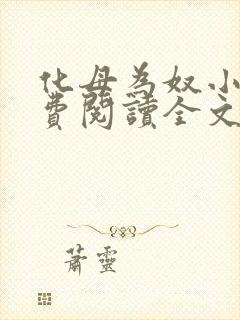 化母為奴小
費閱讀全文
蕭靈